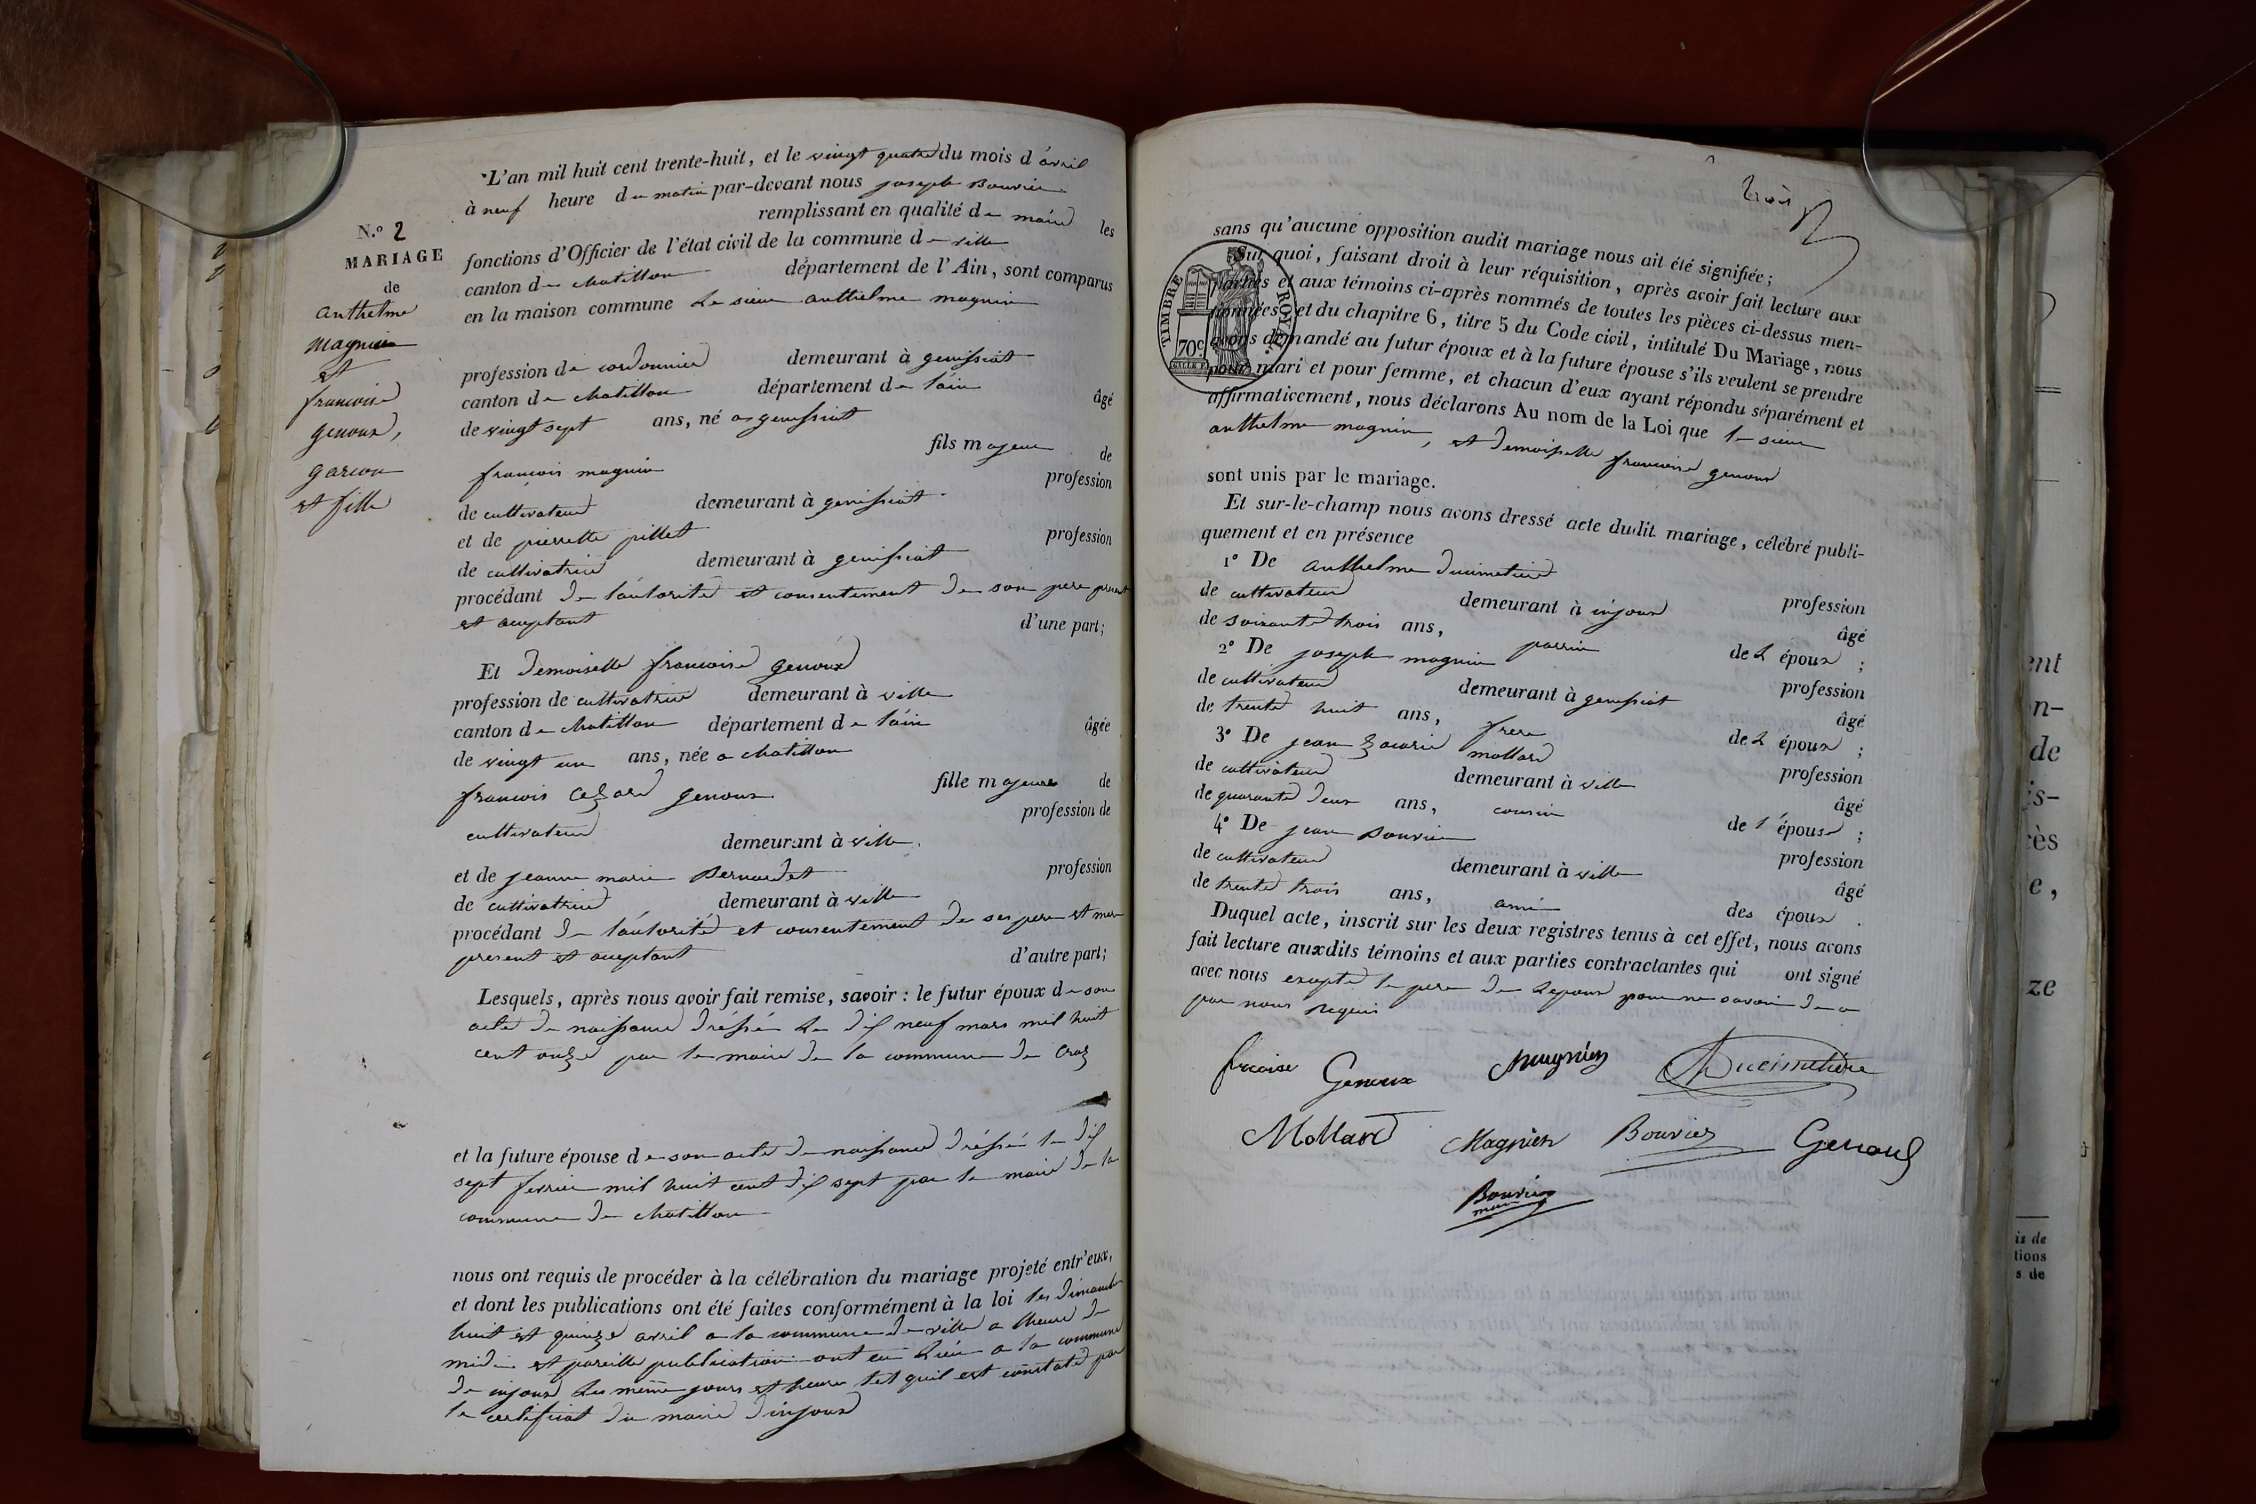 L'an mil huit cent trente-huit, et le vingt quatre du mois d'avril
à neuf heure du matin par-devant nous joseph Bouvier
remplissant en qualité de maire les
fonctions d'Officier de l'état civil de la commune de ville
canton de chatillon département de l'Ain, sont comparus
en la maison commune Le sieur anthelme magnin
N.o 2
MARIAGE
de
anthelme
magnin
et
francoise
genoux,
garcon
et fille
profession de cordonnier demeurant à genissiat
canton de chatillon département de l'ain âgé
de vingt sept ans, né a genissiat
fils majeur de
francois magnin profession
de cultivateur demeurant à genissiat
et de pierrette pillet profession
de cultivatrice demeurant à genissiat
procédant de l'autorité et consentement de son pere present
et aceptant d'une part;
Et demoiselle francoise genoux
profession de cultivatrice demeurant à ville
canton de chatillon département de l'ain âgée
de vingt un ans, née a chatillon
fille majeure de
francois cezard genoux profession de
cultivateur demeurant à ville
et de jeanne marie Bernardet profession
de cultivatrice demeurant à ville
procédant de l'autorité et consentement de ses pere et mere
present et aceptant d'autre part;
Lesquels, après nous avoir fait remise, savoir : le futur époux de son
acte de naissance dréssée Le dix neuf mars mil huit
cent onze par le maire de la commune de Craz
et la future épouse de son acte de naissance dréssée le dix
sept fevrier mil huit cent dix sept par le maire de la
commune de chatillon
nous ont requis de procéder à la célébration du mariage projeté entr'eux,
et dont les publications ont été faites conformément à la loi les dimanche
huit et quinze avril a la commune de ville a lheure de
midi et pareille publication ont eu Lieu a la commune
de injoux Les même jours et heure tel quil est constaté par
le certificat du maire d'injoux
trois
sans qu'aucune opposition audit mariage nous ait été signifiée;
Sur quoi, faisant droit à leur réquisition, après avoir fait lecture aux
parties et aux témoins ci-après nommés de toutes les pièces ci-dessus men-
tionnées et du chapitre 6, titre 5 du Code civil, intitulé Du Mariage, nous
avons demandé au futur époux et à la future épouse s'ils veulent se prendre
pour mari et pour femme, et chacun d'eux ayant répondu séparément et
affirmativement, nous déclarons Au nom de la Loi que le sieur
anthelme magnin, et demoiselle francoise genoux
TIMBRE ROYAL.
70c
sont unis par le mariage.
Et sur-le-champ nous avons dressé acte dudit mariage, célébré publi-
quement et en présence
1° De anthelme ducimetiere profession
de cultivateur demeurant à injoux âgé
de soixante trois ans, parrin de L époux ;
2° De joseph magnin profession
de cultivateur demeurant à genissiat âgé
de trente huit ans, frere de L époux ;
3° De jean zacarie mollard profession
de cultivateur demeurant à ville âgé
de quarante deux ans, cousin de l'épouse ;
4° De jean Bouvier profession
de cultivateur demeurant à ville âgé
de trente trois ans, ami des époux .
Duquel acte, inscrit sur les deux registres tenus à cet effet, nous avons
fait lecture auxdits témoins et aux parties contractantes qui ont signé
avec nous exepté le pere de Lepoux pour ne savoir de ce
par nous requis
fracoise Genoux Magnien Ducimetière
Mollard Magnien Bouvier Genoux
Bouvier
maire
ent
n-
de
is-
cès
e,
ze
is de
tions
s de